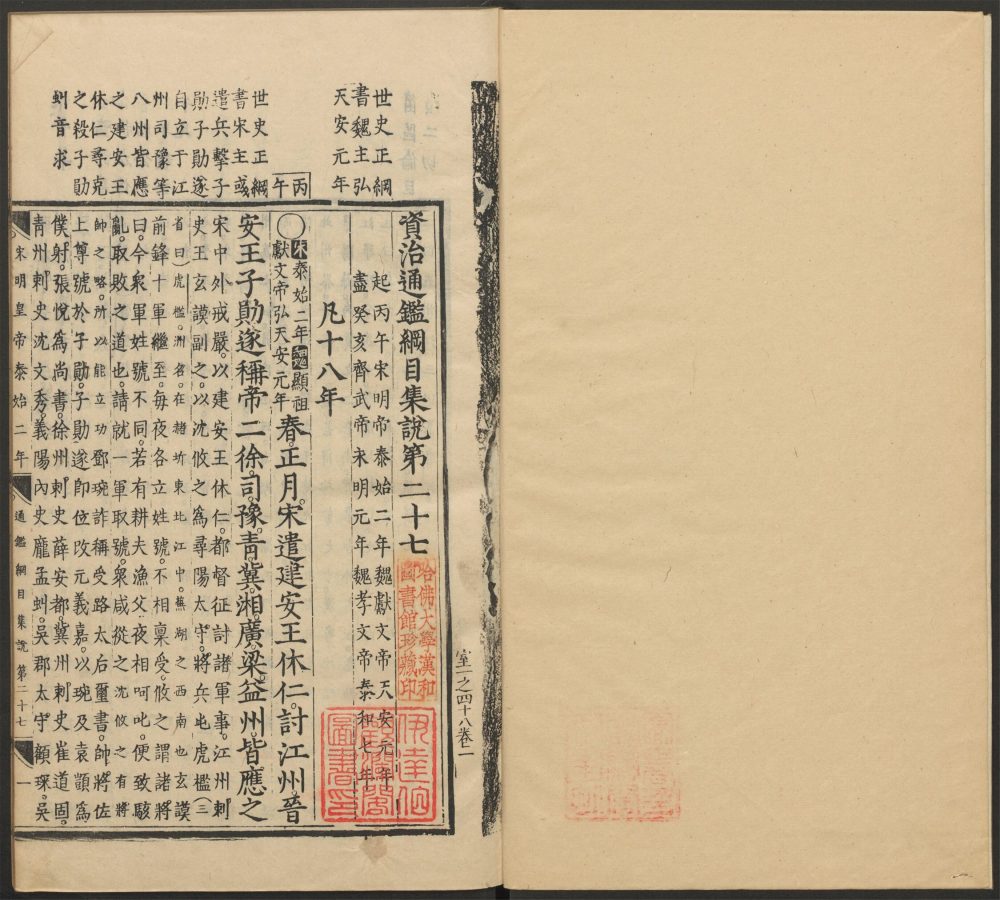 世史正綱
書魏主弘
天安元年
世史正綱
書宋主彧
遣兵擊子
勛子勛遂
自立于江
州司豫等
八州皆應
之建安王
休仁尋克
之殺子勛
虯音求
丙午
資治通鑑綱目集說第二十七
起丙午宋明帝泰始二年魏獻文帝天安元年
盡癸亥齊武帝永明元年魏孝文帝泰和七年
凡十八年
〇宋泰始二年魏顯祖
獻文帝弘天安元年
春正月宋遣建安王休仁討江州晉
安王子勛遂稱帝二徐司豫青冀湘廣梁益州皆應之
宋中外戒嚴以建安王休仁都督征討諸軍事江州刺
史王玄謨副之以沈攸之為尋陽太守將兵屯虎檻三
省曰虎檻洲名在赭圻東北江中蕪湖之西南也玄謨
前鋒十軍繼至每夜各立姓號不相稟受攸之謂諸將
曰今衆軍姓號不同若有耕夫漁父夜相呵叱便致駭
亂取敗之道也請就一軍取號衆咸從之沈攸之有將
帥之略所以能立功鄧琬詐稱受路太后璽書帥將佐
上尊號於子勛子勛遂即位改元義嘉以琬及袁顗為
僕射張悅為尚書徐州刺史薛安都冀州刺史崔道固
青州刺史沈文秀義陽內史龐孟虯吳郡太守顧琛吳
宋明皇帝泰始二年
通鑑綱目集說第二十七
一
哈佛大學漢和
圖書館珍藏印
室一之四十八卷二